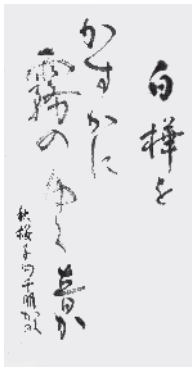 白樺を
かすかに
霧の
ゆく音か
秋桜子句